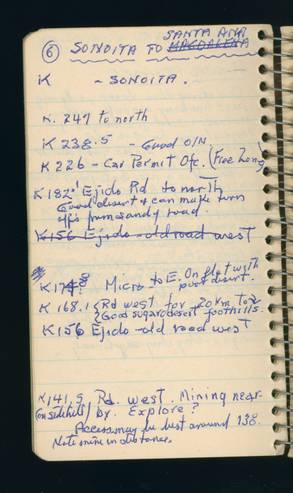 ⑥ SONOITA TO SANTA ANA
MAGDALENA
K ~ SONOITA.
K. 247 to north
K 238.5 - Good O/N.
K 226 - Car Permit Ofc. (Free Zone)
K 182' Ejido Rd to north
Good desert & can make turn
off's from sandy road.
K 156 Ejido - old road west
K 174 Micro to E. On flat with
poor desert.
K 168.1 Rd west for 20 Km to a
Good sugar desert foothills.
K 156 Ejido - old road west
K 141.5 Rd. west. Mining near-
(on side hill) by. Explore?
Access may be best around 138.
Note mine in distance.